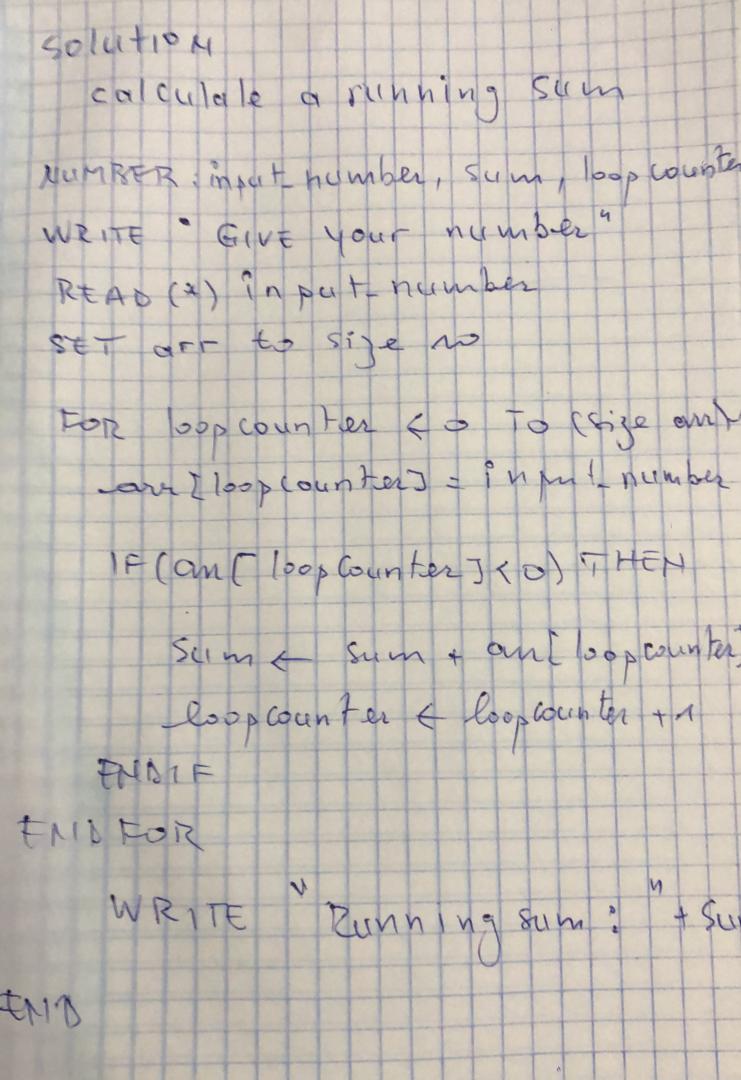 Solution
calculate a running sum
NUMBER: input_number, sum, loopcounter
WRITE " GIVE your number"
READ (*) input_number
SET arr to size 10
FOR loopcounter ← 0 TO (size arr)
arr[loopcounter] = input_number
IF (arr[loopcounter] < 0) THEN
sum ← sum + arr[loopcounter]
loopcounter ← loopcounter + 1
ENDIF
END FOR
WRITE "Running sum: " + Su
END